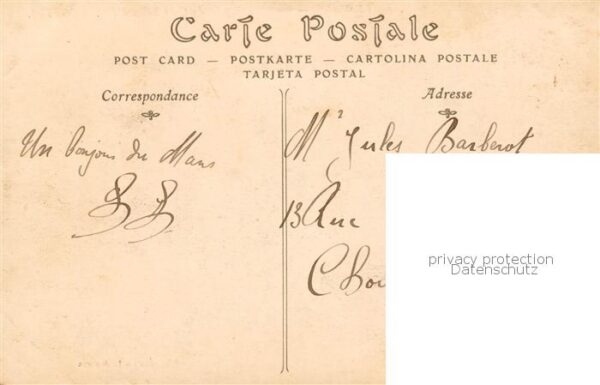 Carte Postale
POST CARD — POSTKARTE — CARTOLINA POSTALE
TARJETA POSTAL
Correspondance
Adresse
Un bonjour du Mans
Mr Jules Barberot
13 Rue
privacy protection
Datenschutz